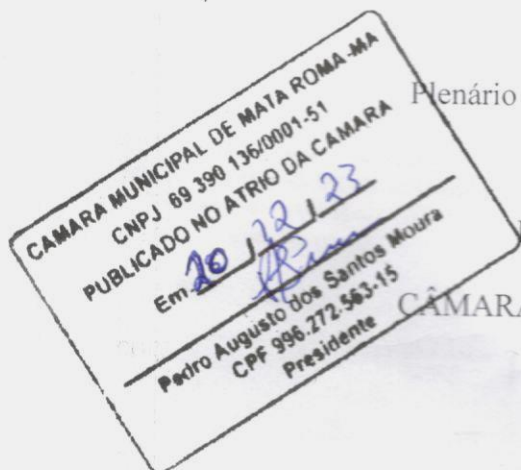 Plenário
CAMARA MUNICIPAL DE MATA ROMA-MA
CNPJ 69 390 136/0001-51
PUBLICADO NO ATRIO DA CAMARA
Em 20 / 12 / 23
Pedro Augusto dos Santos Moura
CPF 996.272-563-15
Presidente
CÂMARA